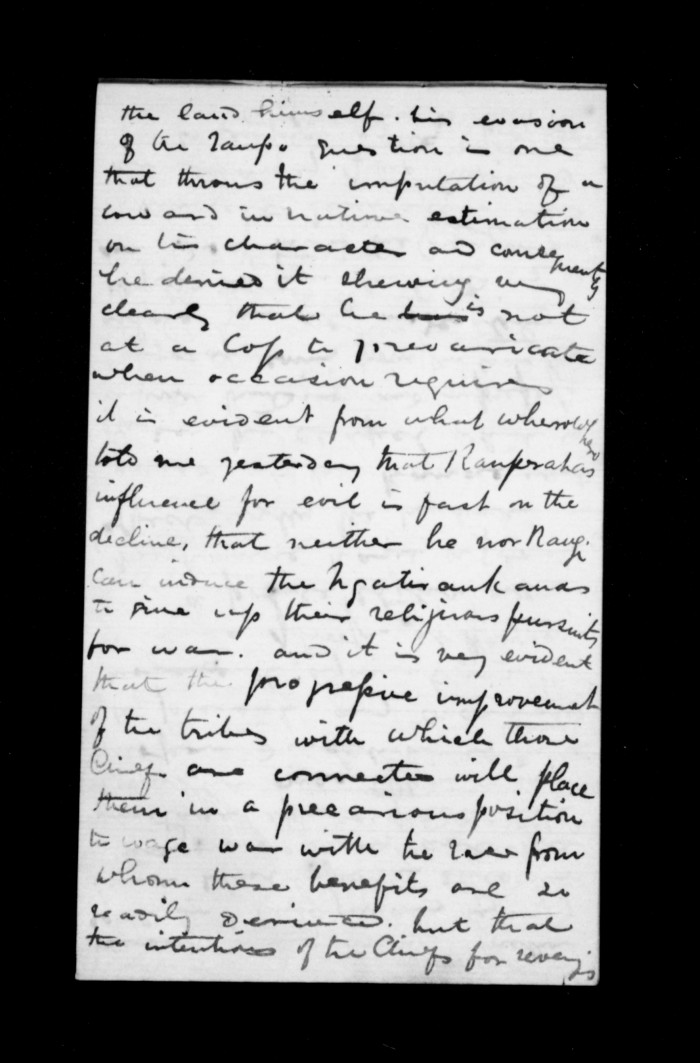 the land himself. his evasion
of the Taupo question is one
that throws the imputation of a
coward in native estimation
on his character and consequently
he denied it shewing very
clearly that he is not
at a loss to prevaricate
when occasion requires
it is evident from what
told me yesterday that Rauperahas
influence for evil is fast on the
decline, that neither he nor Rangi
can induce the Ngatiraukauas
to give up their religious pursuits
for war. and it is very evident
that the progressive improvement
of the tribes with which those
Chiefs are connected will place
them in a precarious position
to wage war with the race from
whom these benefits are so
readily derived. but that
the intentions of the Chiefs for revenge